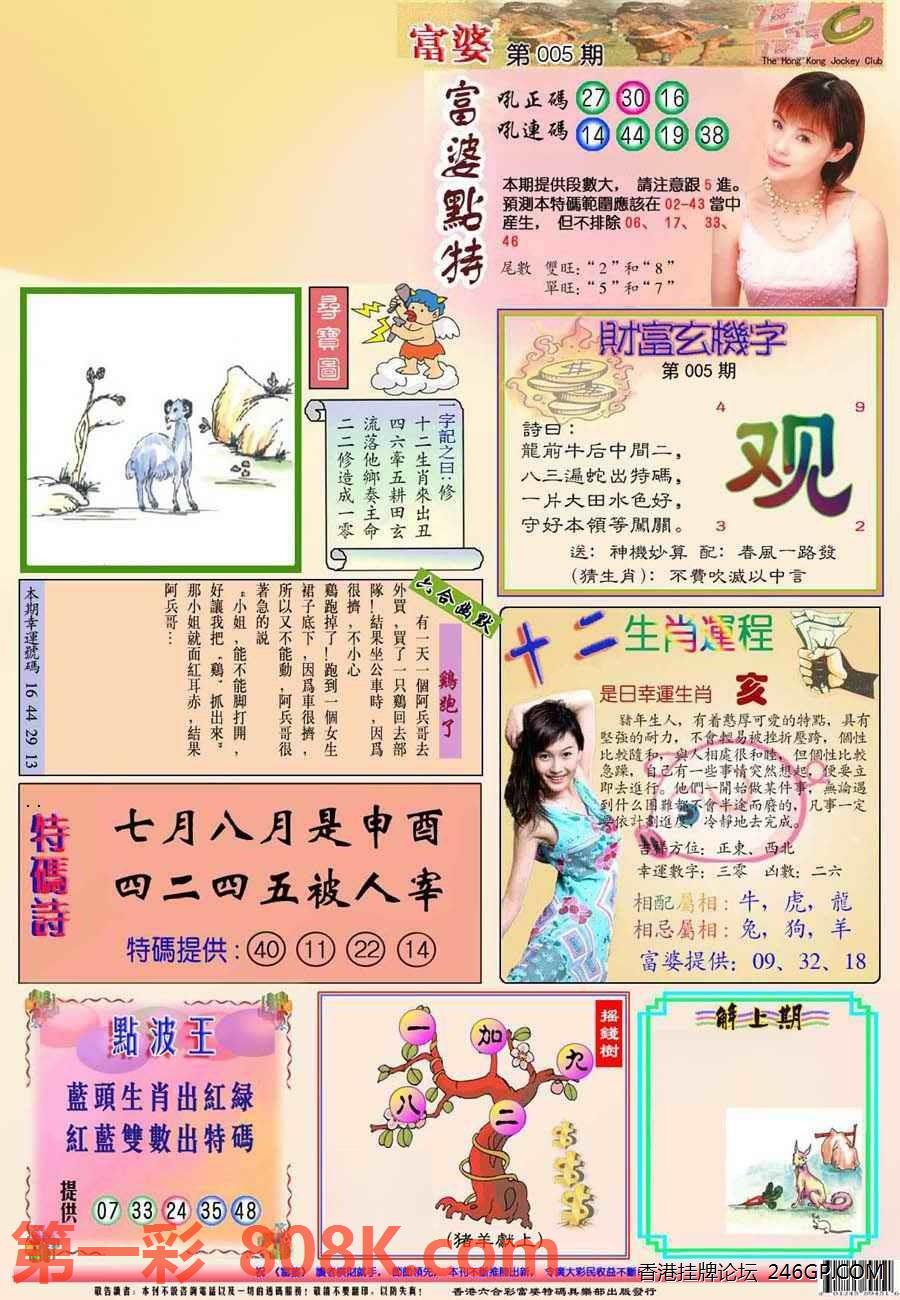 富婆 第005期
The Hong Kong Jockey Club
富婆點特
吼正碼 27 30 16
吼連碼 14 44 19 38
本期提供段數大， 請注意跟5進。
預測本特碼範圍應該在02-43當中
産生， 但不排除06、 17、 33、
46
尾數 雙旺：“2”和“8”
單旺：“5”和“7”
尋寶圖
一字記之曰：修
十二生肖來出丑
四六牽五耕田玄
流落他鄉奏主命
二二修造成一零
財富玄機字
第005期
詩曰：
龍前牛后中間二，
八三遍蛇出特碼，
一片大田水色好，
守好本領等闖關。
4 9
观
3 2
送： 神機妙算 配： 春風一路發
（猜生肖）：不費吹滅以中言
六合幽默
鷄跑了
有一天一個阿兵哥去
外買，買了一只鷄回去部
隊！結果坐公車時，因爲
很擠，不小心
鷄跑掉了！跑到一個女生
裙子底下，因爲車很擠，
所以又不能動，阿兵哥很
著急的説
“小姐，能不能脚打開，
好讓我把“鷄”抓出來”
那小姐就面紅耳赤，結果
阿兵哥…
本期幸運號碼 16 44 29 13
十二生肖運程
是日幸運生肖 亥
豬年生人，有着憨厚可愛的特點，具有
堅強的耐力，不會輕易被挫折壓跨，個性
比較隨和，與人相處很和睦，但個性比較
急躁，自己有一些事情突然想起，便要立
即去進行。他們一開始做某件事，無論遇
到什么困難都不會半途而廢的，凡事一定
要依計劃進度，冷靜地去完成。
吉祥方位：正東、西北
幸運數字：三零 凶數：二六
相配屬相：牛，虎，龍
相忌屬相：兔，狗，羊
富婆提供：09、32、18
特碼詩
七月八月是申酉
四二四五被人宰
特碼提供：40 11 22 14
點波王
藍頭生肖出紅緑
紅藍雙數出特碼
提供 07 33 24 35 48
摇錢樹
一 加 九
八 二
（豬羊獻上）
解上期
第一彩 808K.com
祝《富婆》讀者橫財就手， 節節領先， 本刊不斷推陳出新， 令廣大彩民收益不斷
香港挂牌论坛 246GP.COM
敬告讀者：本刊不設咨詢電話以及一切的透碼服務！敬請不要翻印，以防失真！ 香港六合彩富婆特碼俱樂部出版發行